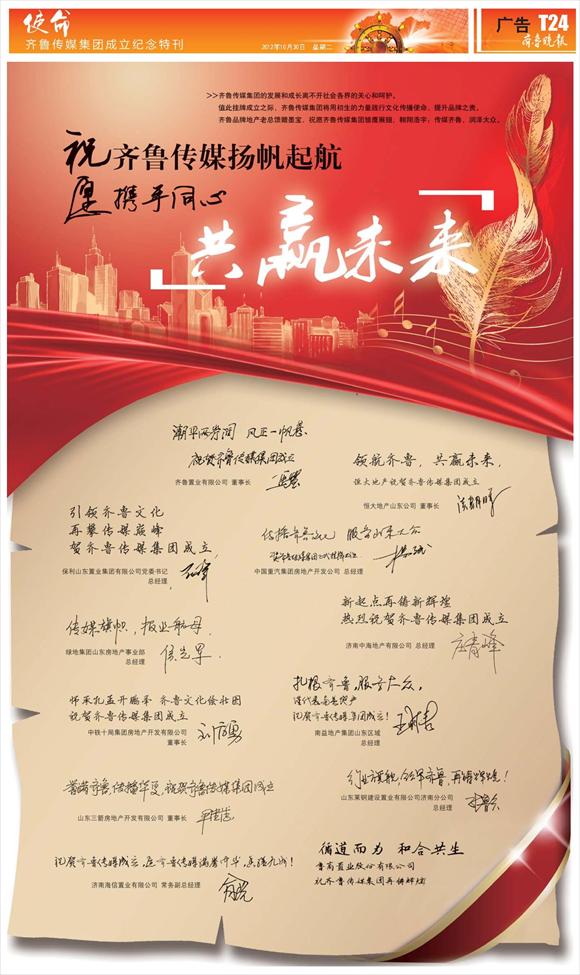 使命
齐鲁传媒集团成立纪念特刊
2012年10月30日 星期二
广告
T24
齐鲁晚报
>>齐鲁传媒集团的发展和成长离不开社会各界的关心和呵护。
值此挂牌成立之际，齐鲁传媒集团将用初生的力量践行文化传播使命，提升品牌之责。
齐鲁品牌地产老总馈赠墨宝，祝愿齐鲁传媒集团雏鹰展翅，翱翔浩宇；传媒齐鲁，润泽大众。
祝齐鲁传媒扬帆起航
愿携手同心
共赢未来
潮平两岸阔 风正一帆悬
祝贺齐鲁传媒集团成立
齐鲁置业有限公司 董事长
领航齐鲁，共赢未来，
恒大地产祝贺齐鲁传媒集团成立
恒大地产山东公司 董事长
引领齐鲁文化
再攀传媒巅峰
贺齐鲁传媒集团成立
保利山东置业集团有限公司党委书记
总经理
传播齐鲁文化 服务山东大众
中国重汽集团房地产开发公司 总经理
传媒旗帜，报业航母
绿地集团山东房地产事业部
总经理
新起点再铸新辉煌
热烈祝贺齐鲁传媒集团成立
济南中海地产有限公司 总经理
师承孔孟开鹏举 齐鲁文化绘壮图
祝贺齐鲁传媒集团成立
中铁十局集团房地产开发有限公司
董事长
扎根齐鲁，服务大众，
祝贺齐鲁传媒集团成立！
南益地产集团山东区域
总经理
誉满齐鲁，传播华夏，祝贺齐鲁传媒集团成立
山东三箭房地产开发有限公司 董事长
行业旗舰，领军齐鲁，再铸辉煌！
山东莱钢建设置业有限公司济南分公司
总经理
祝贺齐鲁传媒成立，
济南海信置业有限公司 常务副总经理
循道而为 和合共生
鲁商置业股份有限公司
祝齐鲁传媒集团再铸辉煌